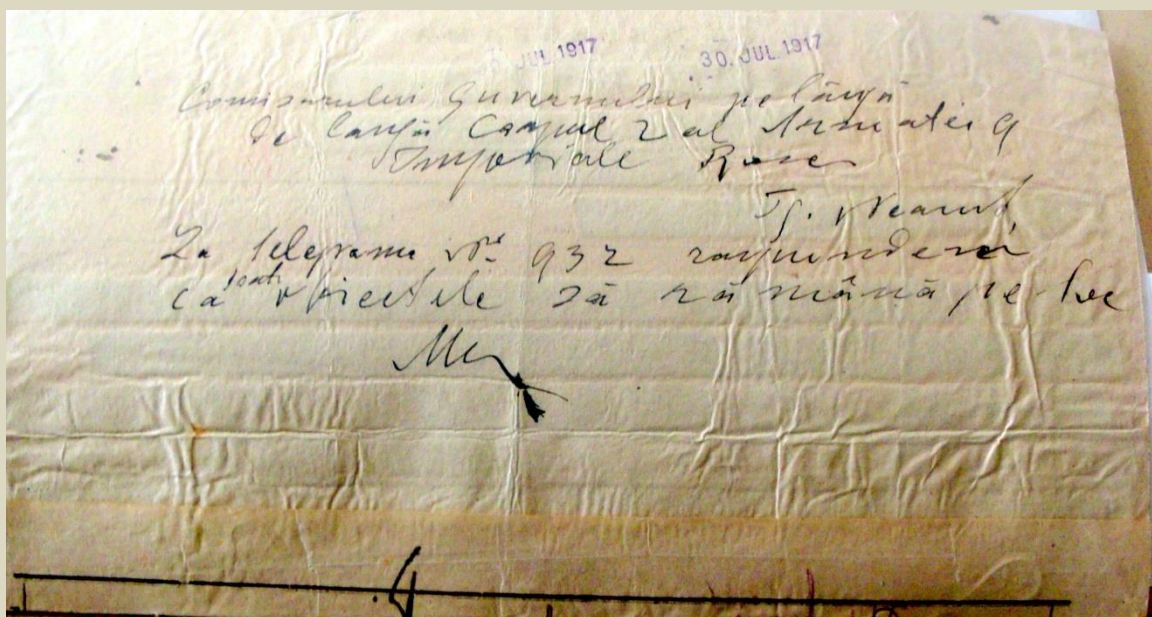 JUL 1917 30. JUL 1917
Comisarului Guvernului pe lângă
de langă Corpul 2 al Armatei 9
Imperiale Ruse
Tg. Neamț
La telegrama No 932 raspunderei
ca poate obiectele să rămână pe loc